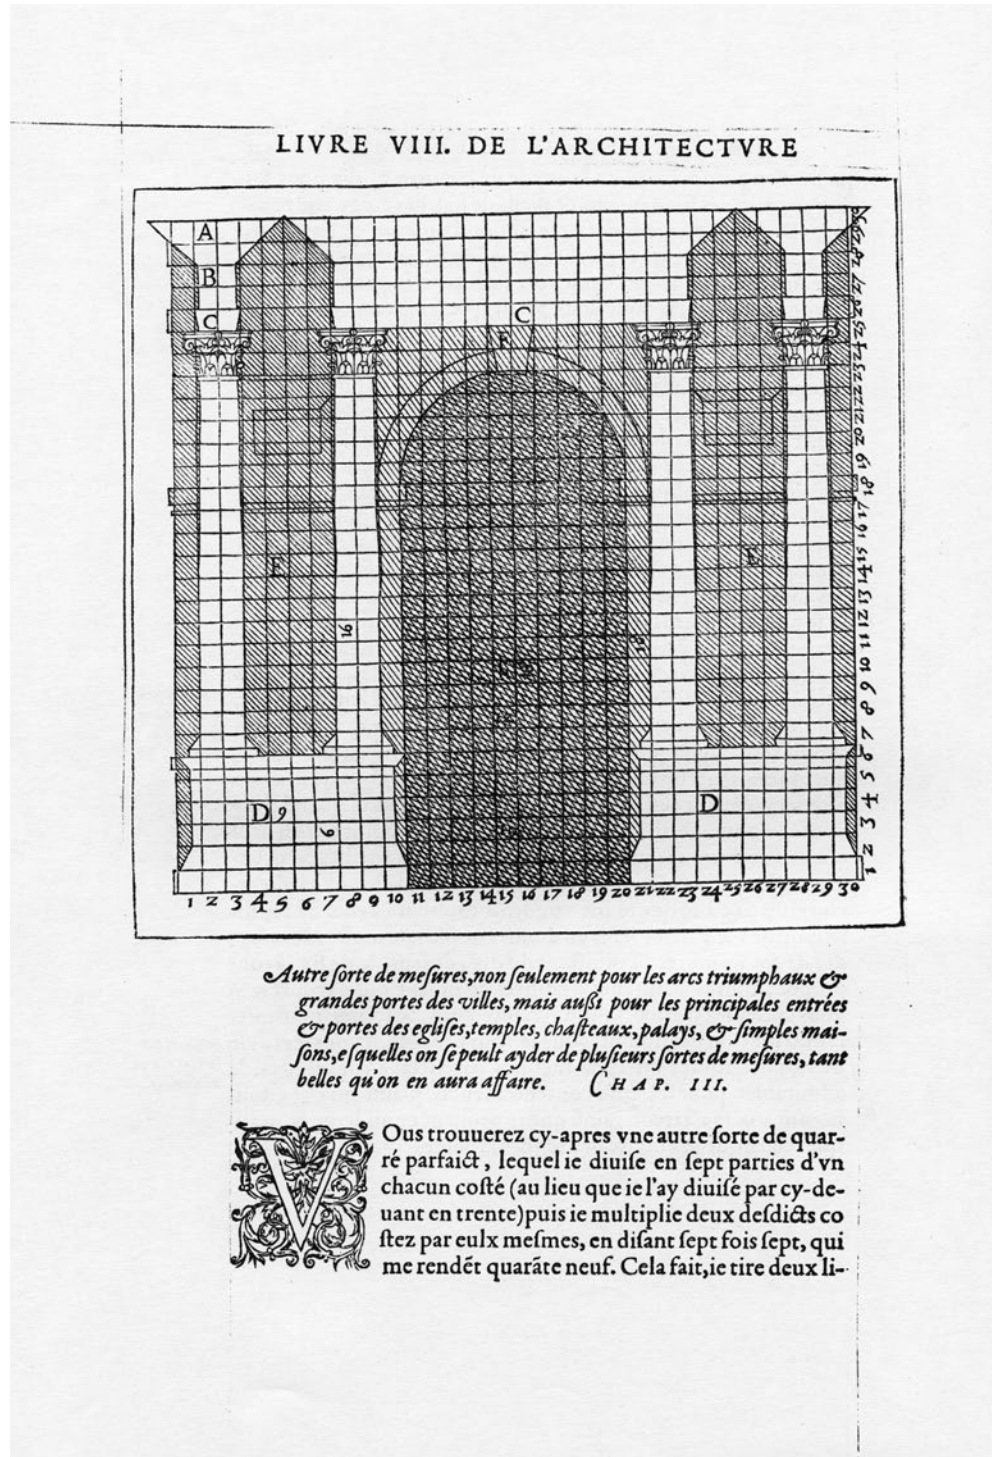 LIVRE VIII. DE L'ARCHITECTVRE
A
B
C
C
F
E
E
16
16
D 9
6
D
30
29
28
27
26
25
24
23
22
21
20
19
18
17
16
15
14
13
12
11
10
9
8
7
6
5
4
3
2
1
1 2 3 4 5 6 7 8 9 10 11 12 13 14 15 16 17 18 19 20 21 22 23 24 25 26 27 28 29 30
Autre ſorte de meſures, non ſeulement pour les arcs triumphaux &
grandes portes des villes, mais außi pour les principales entrées
& portes des egliſes, temples, chaſteaux, palays, & ſimples mai-
ſons, eſquelles on ſe peult ayder de pluſieurs ſortes de meſures, tant
belles qu'on en aura affaire. CHAP. III.
VOus trouuerez cy-apres vne autre ſorte de quar-
ré parfaict, lequel ie diuiſe en ſept parties d'vn
chacun coſté (au lieu que ie l'ay diuiſé par cy-de-
uant en trente) puis ie multiplie deux deſdicts co
ſtez par eulx meſmes, en diſant ſept fois ſept, qui
me rendēt quarāte neuf. Cela fait, ie tire deux li-